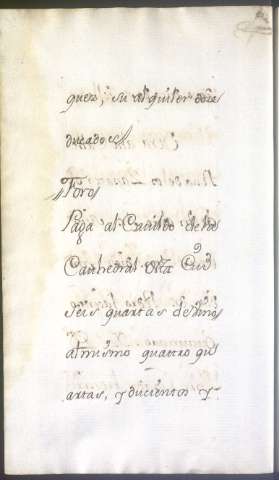 quez, su alquiler doze
ducados //
// Toro
Paga al Cavildo de la
Cathedral esta Ciu.d
seis quartas de vino
al mismo quattro qu
artas, y ducientos y